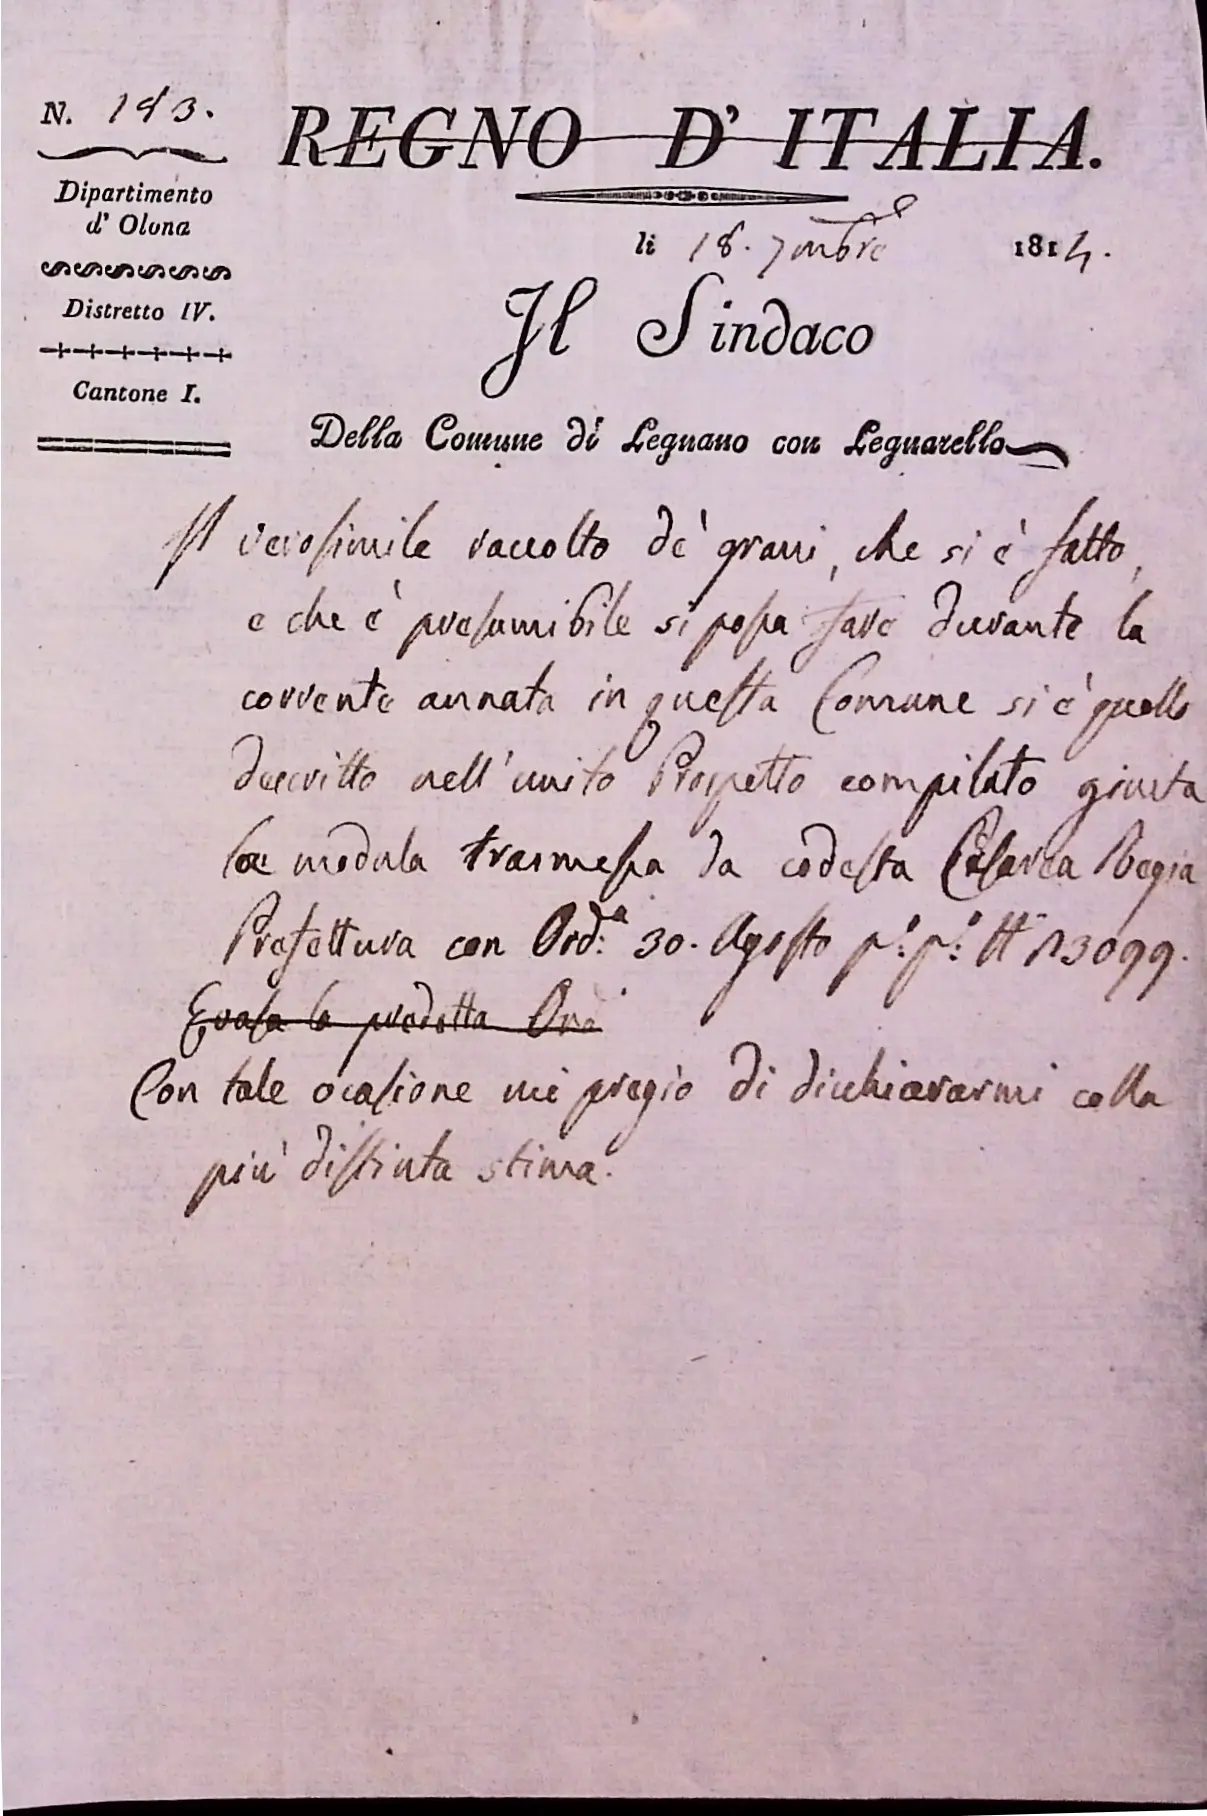 N. 183.
REGNO D' ITALIA.
Dipartimento
d' Olona
li 18. 7mbre 1814.
Distretto IV.
Il Sindaco
Cantone I.
Della Comune di Legnano con Legnarello
Il verosimile raccolto de' grani, che si è fatto,
e che è presumibile si possa fare durante la
corrente annata in questa Comune si è quello
descritto nell' unito Prospetto compilato giusta
la modula trasmessa da codesta Cesarea Regia
Prefettura con Ord:ª 30. Agosto p:º p:º N 13099.
Evasa la predetta Ord
Con tale ocasione mi pregio di dichiararmi colla
più distinta stima.